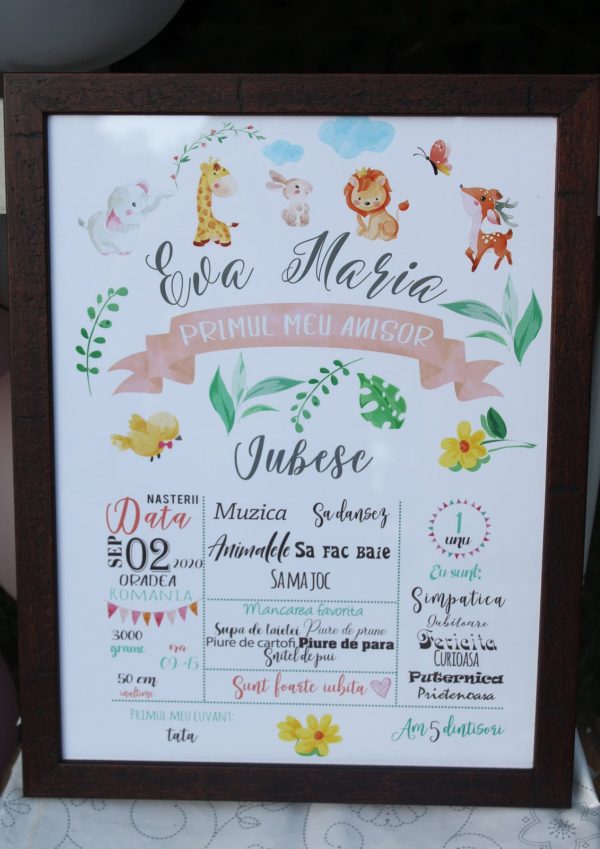 Eva Maria
PRIMUL MEU ANISOR
Iubesc
NASTERII
Data
SEP 02 2020
ORADEA
ROMANIA
3000 grame
ora 09:45
50 cm
inaltime
Muzica Sa dansez
Animalele Sa Fac Baie
SA MA JOC
Mancarea favorita
Supa de taietei Piure de prune
Piure de cartofi Piure de para
Snitel de pui
Sunt foarte iubita
1
unu
Eu sunt:
Simpatica
Iubitoare
Fericita
CURIOASA
Puternica
Prietenoasa
PRIMUL MEU CUVANT:
tata
Am 5 dintisori